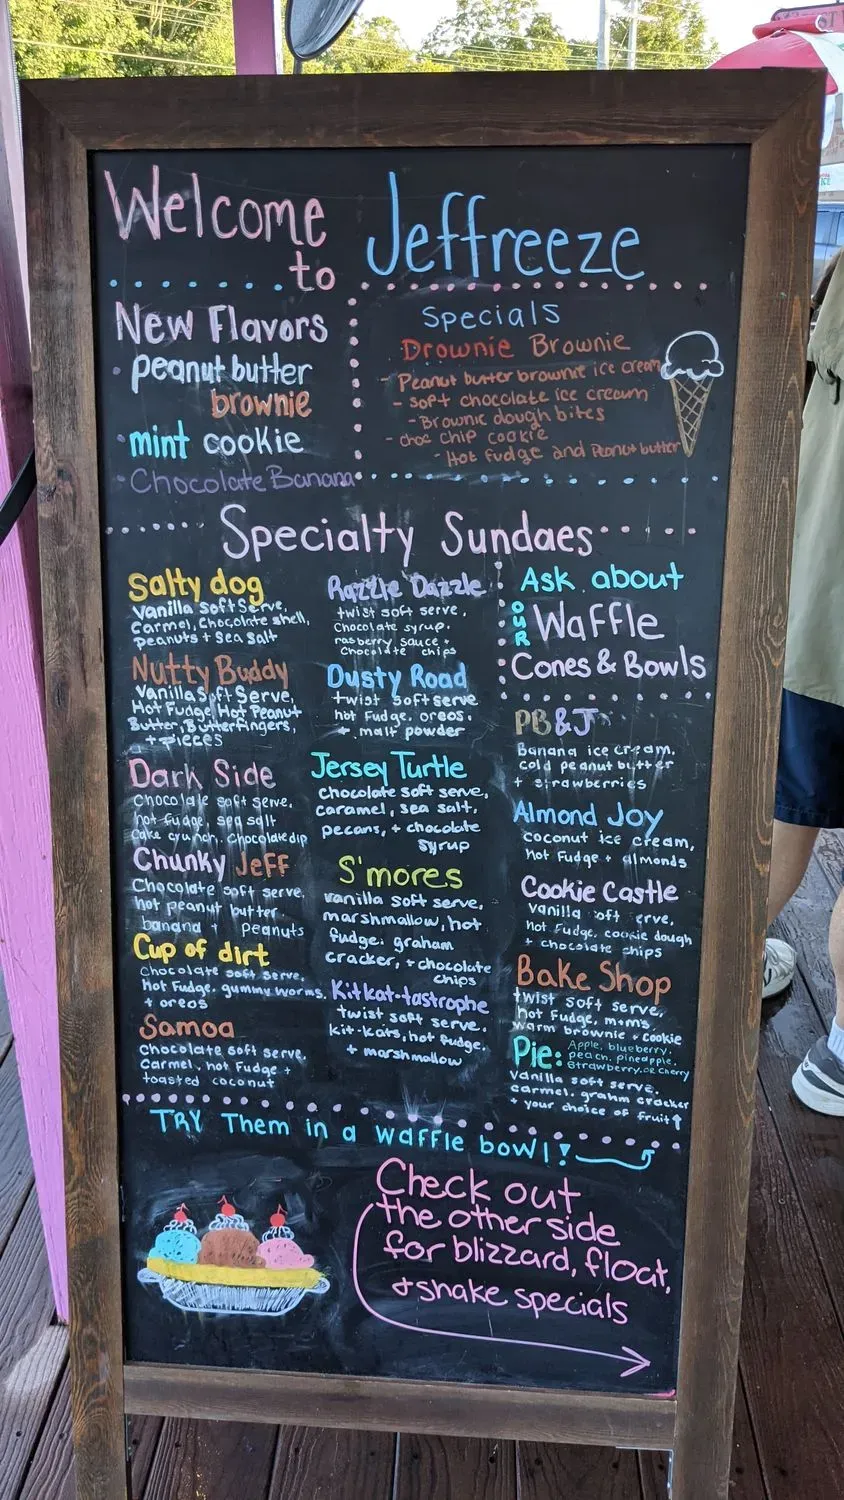 Welcome
to
Jeffreeze
New Flavors
peanut butter
brownie
mint cookie
Chocolate Banana
Specials
Drownie Brownie
- Peanut butter brownie ice cream
- soft chocolate ice cream
- Brownie dough bites
- choc chip cookie
- Hot fudge and Peanut butter
Specialty Sundaes
Salty dog
Vanilla Soft Serve,
Carmel, Chocolate shell,
Peanuts + Sea Salt
Nutty Buddy
Vanilla Soft Serve,
Hot Fudge, Hot Peanut
Butter, Butterfingers,
+ Pieces
Dark Side
Chocolate soft serve,
hot fudge, sea salt
cake crunch, chocolate dip
Chunky Jeff
Chocolate soft serve,
hot peanut butter
banana + peanuts
Cup of dirt
Chocolate soft serve,
Hot Fudge, gummy worms,
+ oreos
Samoa
Chocolate soft serve,
Carmel, hot Fudge +
toasted coconut
Razzle Dazzle
twist soft serve,
Chocolate syrup,
rasberry sauce +
Chocolate chips
Dusty Road
twist soft serve
hot Fudge, oreos,
+ malt powder
Jersey Turtle
chocolate soft serve,
caramel, sea salt,
pecans, + chocolate
syrup
S'mores
vanilla soft serve,
marshmallow, hot
fudge, graham
cracker, + chocolate
chips
Kitkat-tastrophe
twist soft serve,
kit-kats, hot fudge,
+ marshmallow
Ask about
OUR Waffle
Cones & Bowls
PB&J
Banana ice cream,
cold peanut butter
+ strawberries
Almond Joy
coconut ice cream,
hot Fudge + almonds
Cookie Castle
vanilla soft serve,
hot Fudge, cookie dough
+ chocolate chips
Bake Shop
twist soft serve,
hot Fudge, m&m's
warm brownie + cookie
Pie: Apple, blueberry,
peach, pineapple,
Strawberry, OR Cherry
vanilla soft serve,
carmel, grahm cracker
+ your choice of fruit
TRY Them in a waffle bowl!
Check out
the other side
for blizzard, float,
+ shake specials